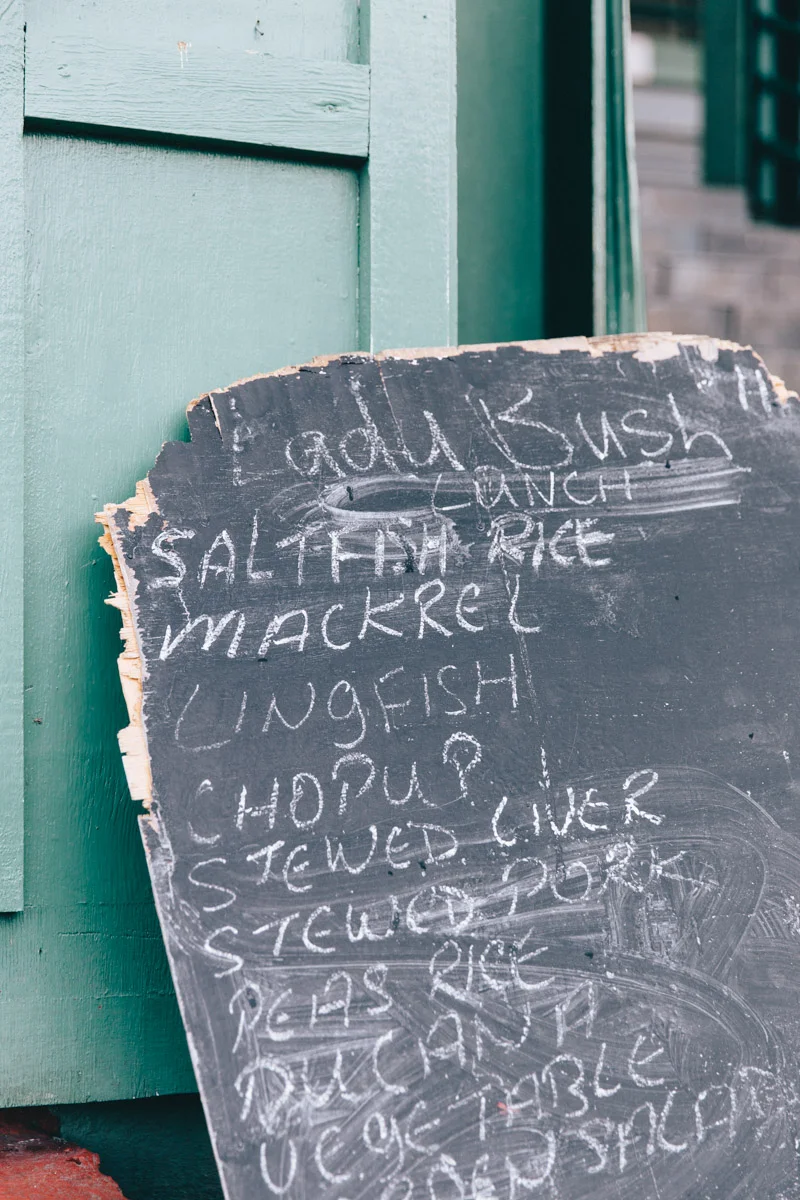 Lady Bush
LUNCH
SALTFISH RICE
MACKREL
LINGFISH
CHOPU?
STEWED LIVER
STEWED PORK
PEAS RICE
VEGETABLE
SALAD